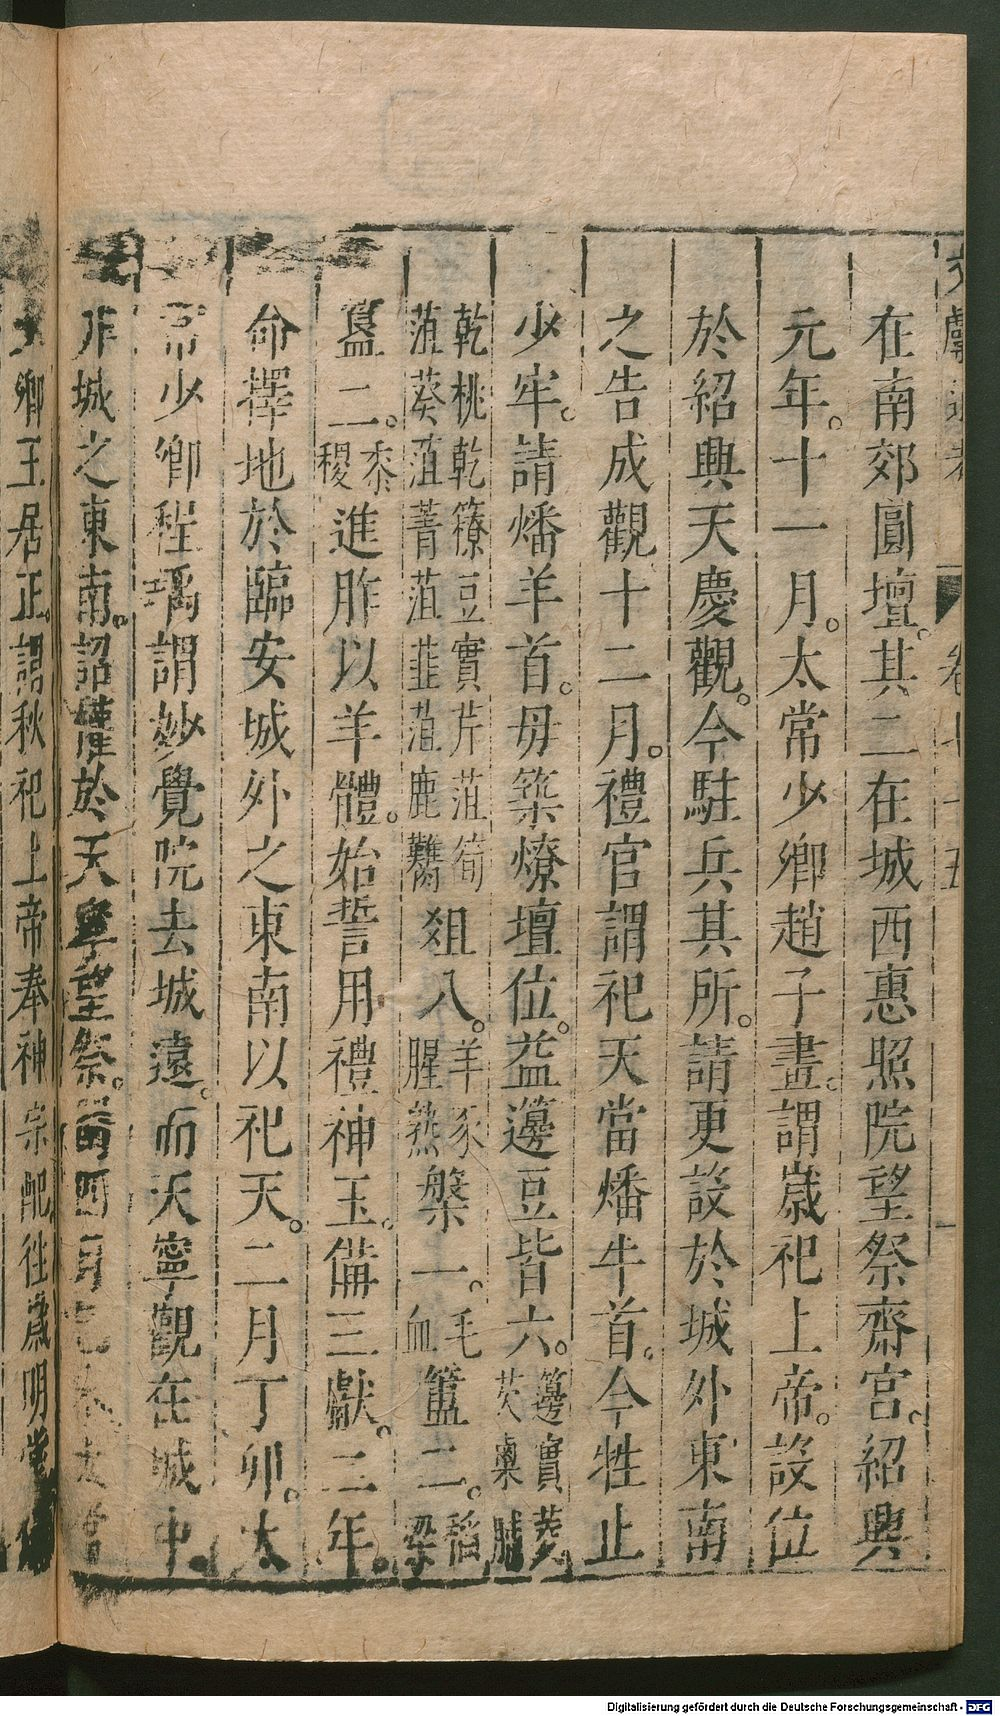 文獻通考 卷七十五
在南郊圓壇。其二在城西惠照院望祭齋宮。紹興
元年。十一月。太常少卿趙子晝。謂歲祀上帝。設位
於紹興天慶觀。今駐兵其所。請更設於城外東南
之告成觀十二月。禮官謂祀天當燔牛首。今牲止
少牢。請燔羊首。毋築燎壇位。益籩豆皆六。籩實菱芡㮚脯
乾桃乾䕩豆實芹菹筍菹葵菹菁菹韭菹鹿臡俎八。羊豕腥熟槃一。毛血簠二。稻粱
簋二。黍稷進胙以羊體。始誓用禮神玉。備三獻。二年。
命擇地於臨安城外之東南以祀天。二月丁卯。太
常少卿程瑀謂妙覺院去城遠。而天寧觀在城中。
非城之東南。詔權於天寧望祭。四月
少卿王居正。謂秋祀上帝奉神宗配。往歲明堂
Digitalisierung gefördert durch die Deutsche Forschungsgemeinschaft - DFG